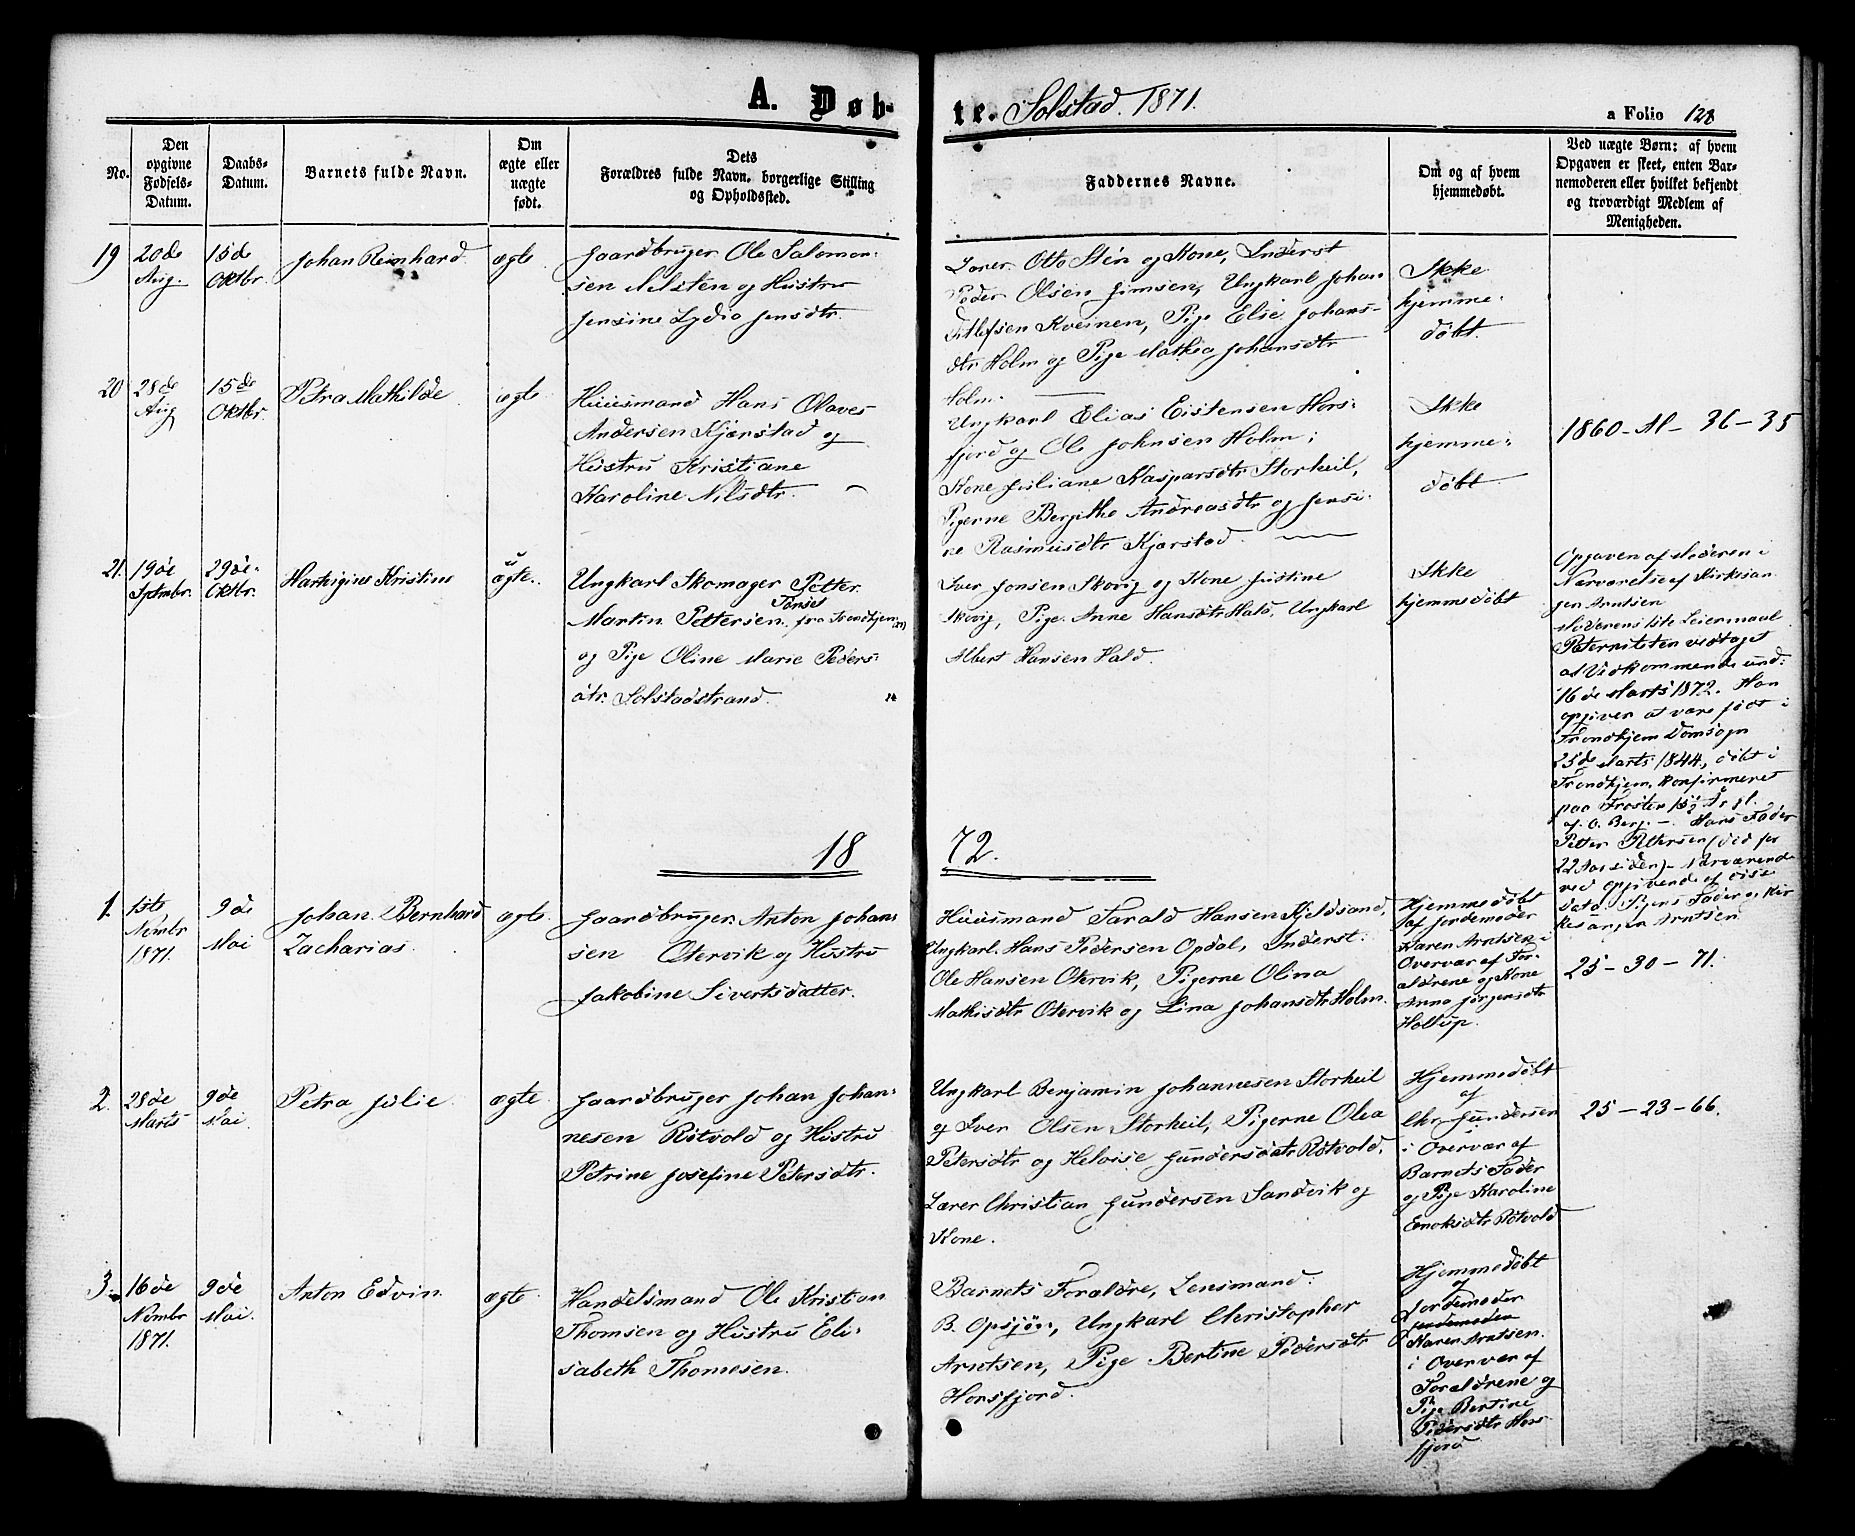 A. Døb-
te. Solstad. 1871.
a Folio 128
No.
Den
opgivne
Fødsels-
Datum.
Daabs-
Datum.
Barnets fulde Navn.
Om
ægte eller
uægte
født.
Dets
Forældres fulde Navn, borgerlige Stilling
og Opholdssted.
Faddernes Navne.
Om og af hvem
hjemmedøbt.
Ved uægte Børn: af hvem
Opgaven er skeet, enten Bar-
nemoderen eller hvilket bekjendt
og troværdigt Medlem af
Menigheden.
19
20de
Aug.
15de
Oktbr.
Johan Reinhard.
ægte
Gaardbruger Ole Salomon-
sen Nilsten og Hustru
Jensine Lydia Jensdtr.
Lærer Otto Sten og Kone, Inderst
Peder Olsen Simsen, Ungkarl Johan
Ditlefsen Kveinen, Pige Elie Johans-
dtr Holm og Pige Mathea Johansdtr
Holm.
Ikke
hjemme-
døbt.
20
28de
Aug
15de
Oktbr.
Petra Mathilde
ægte
Huusmand Hans Olaves
Andersen Kjærstad og
Hustru Kristiane
Karoline Nilsdtr.
Ungkarl Elias Eistensen Hors-
fjord og Ole Johnsen Holm;
Kone Juliane Kasparsdtr Storheil,
Pigerne Bergithe Andreasdtr og Jensi-
ne Rasmusdtr Kjærstad.
Ikke
hjemme-
døbt
1860-Al-36-35
21.
19de
Sptmbr.
29de
Oktbr.
Hartvigius Kristius
u
ægte.
Ungkarl Skomager Petter
Tønset
Martin Pettersen fra Trondhjem
og Pige Oline Marie Peders-
dtr. Solstadstrand.
Iver Jonsen Skovig og Kone Justine
Skovig, Pige Anne Hansdtr Hald, Ungkarl
Albert Hansen Hald.
Ikke
hjemmedøbt
Opgaven af Moderen i
Nærværelse af Kirkesan-
gen Arntsen
Moderens 1ste Leiermaal
Paterniteten vedtaget
af Vedkommende und:
16de Marts 1872. Han
opgiver at være født i
Trondhjem Domsogn
25de Marts 1844, døbt i
Trondhjem, konfirmeret
paa Frosten
af O. Berg. - Hans Fader
Petter Pettersen (død for
22 Aar siden) - Nærværende
ved opgivende af disse
Data: Pigens Fader og Kir
kesanger Arntsen
1872.
1.
1ste
Novbr
1871.
9de
Mai
Johan Bernhard
Zacharias.
ægte
Gaardbruger Anton Johan-
sen Otervik og Hustru
Jakobine Sivertsdatter.
Huusmand Tarald Hansen Kjeldsand,
Ungkarl Hans Pedersen Opdal, Inderst
Ole Hansen Otervik, Pigerne Olina
Mathisdtr Otervik og Lina Johansdtr Holm.
Hjemmedøbt
af Jordemoder
Karen Arntsen i
Overvær af For-
ældrene og Kone
Anna Jørgensdtr
Holtup.
25-30-71.
2.
28de
Marts
9de
Mai.
Petra Julie.
ægte.
Gaardbruger Johan Johan-
nesen Røtvold og Hustru
Petrine Josefine Petersdtr.
Ungkarl Benjamin Johannesen Storheil
og Iver Olsen Storheil, Pigerne Olea
Petersdtr og Heloise Gundersdatr Røtvold,
Lærer Christian Gundersen Sandvik og
Kone.
Hjemmedøbt
af
Chr. Gundersen
i Overvær af
Barnets Fader
og Pige Karoline
Enoksdtr Røtvold
25-23-66.
3.
16de
Novmbr
1871.
9de
Mai.
Anton Edvin.
ægte.
Handelsmand Ole Kristian
Thomsen og Hustru Eli-
sabeth Thomesen.
Barnets Forældre, Lensmand
B. Opsjøn, Ungkarl Christopher
Arntsen, Pige Bertine Pedersdtr
Horsfjord.
Hjemmedøbt
af
Jordemoder
Karen Arntsen.
i Overvær af
Forældrene og
Pige Bertine
Pedersdtr Hors-
fjord